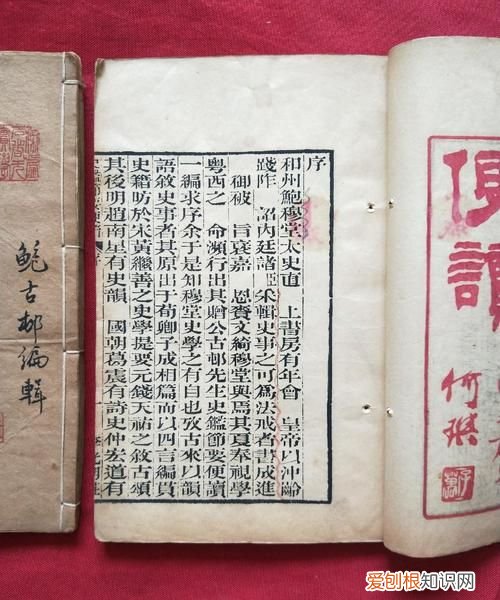 便讀
何
序
和州鮑穆堂太史直　上書房有年會　皇帝以沖齡
踐阼　詔內廷諸臣采輯史事之可為法戒者書成進
御被　旨裦嘉　恩賚文綺穆堂與焉其夏奉視學
粵西之　命瀕行出其贈公古邨先生史鑑節要便讀
一編求序余于是知穆堂史學之有自也攷古來以韻
語敘史事者其原出于荀卿子成相篇而以四言編貫
史籍昉於宋黃繼善之史學提要元錢天祐之敘古頌
其後明趙南星有史韻　國朝葛震有詩史仲宏道有
鮑古邨編輯
爱刨根知识网
www.baogenzhishi.com